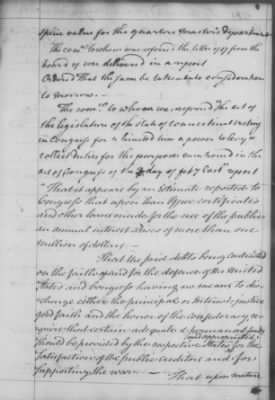 specie value for the quarter masters department
The comee. to whom was referred the letter of 17 from the
board of war delivered in a report
Ordered That the same be taken into consideration
to morrow.—
The comee. to whom was referred the Act of
the legislature of the state of Connecticut vesting
in Congress for a limited time a power to levy &
collect duties for the purposes mentioned in the
act of Congress of the day of feby last report
That it appears by an estimate reported to
Congress that upon loan Office certificates
and other loans made for the use of the public
an annual interest arises of more than one
million of dollars —
That the said debts being contracted
on the faith and for the defence of the United
States and Congress having no means to dis-
charge either the principal or interest, justice
good faith and the honor of the confederacy, re
quire that certain adequate & permanent funds
and appropriated
should be provided by the respective states for the
satisfaction of the public creditors and for
supporting the war —
That upon mature